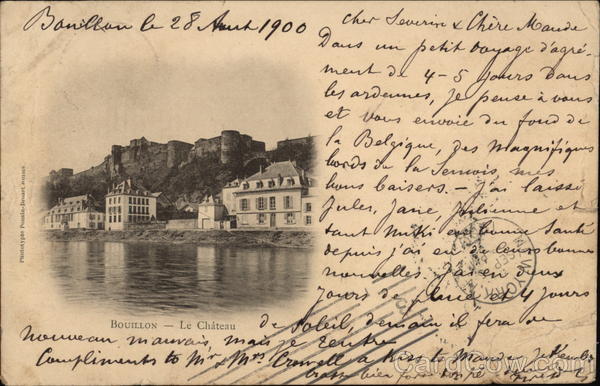 Bouillon le 28 Aout 1900
cher Severin & Chère Maude
Dans un petit voyage d'agré-
ment de 4-5 jours Dans
les ardennes, je pense à vous
et vous envoie du fond de
la Belgique, des Magnifiques
bords de la Semois, mes
bons baisers. - j'ai laissé
Jules, Jane,
tant en bonne Santé
depuis j'ai eu de leurs bonnes
nouvelles. j'ai eu deux
jours de pluie et 4 jours
de Soleil, demain il fera de
nouveau mauvais, mais je rentre
Compliments to Mr & Mrs Crowell a Kiss to Maude,
bien fort
Phototypie
BOUILLON — Le Château
NEW YORK
SEP
CardCow.com